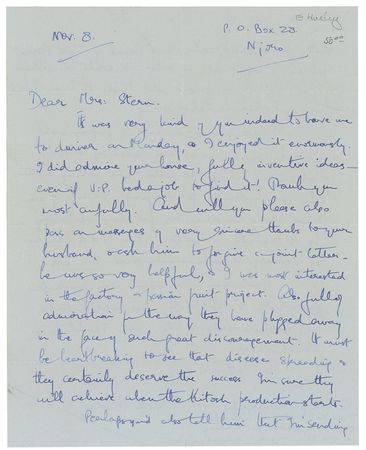 E Huxley
50.00
Nov. 8.
P. O. Box 23.
Njoro
Dear Mrs. Stern.
It was very kind of you indeed to have me
to dinner on Monday, & I enjoyed it enormously.
I did admire your house, full of inventive ideas -
even if V.P. had a job to find it! Thank you
most awfully. And will you please also
pass on messages of very sincere thanks to your
husband, & ask him to forgive a joint letter -
he was so very helpful, & I was most interested
in the factory & passion fruit project. Also full of
admiration for the way they have plugged away
in the face of such great discouragement. It must
be heartbreaking to see that disease spreading &
they certainly deserve the success I'm sure they
will achieve when the Kitosh production starts.
Perhaps you'd also tell him that I'm sending